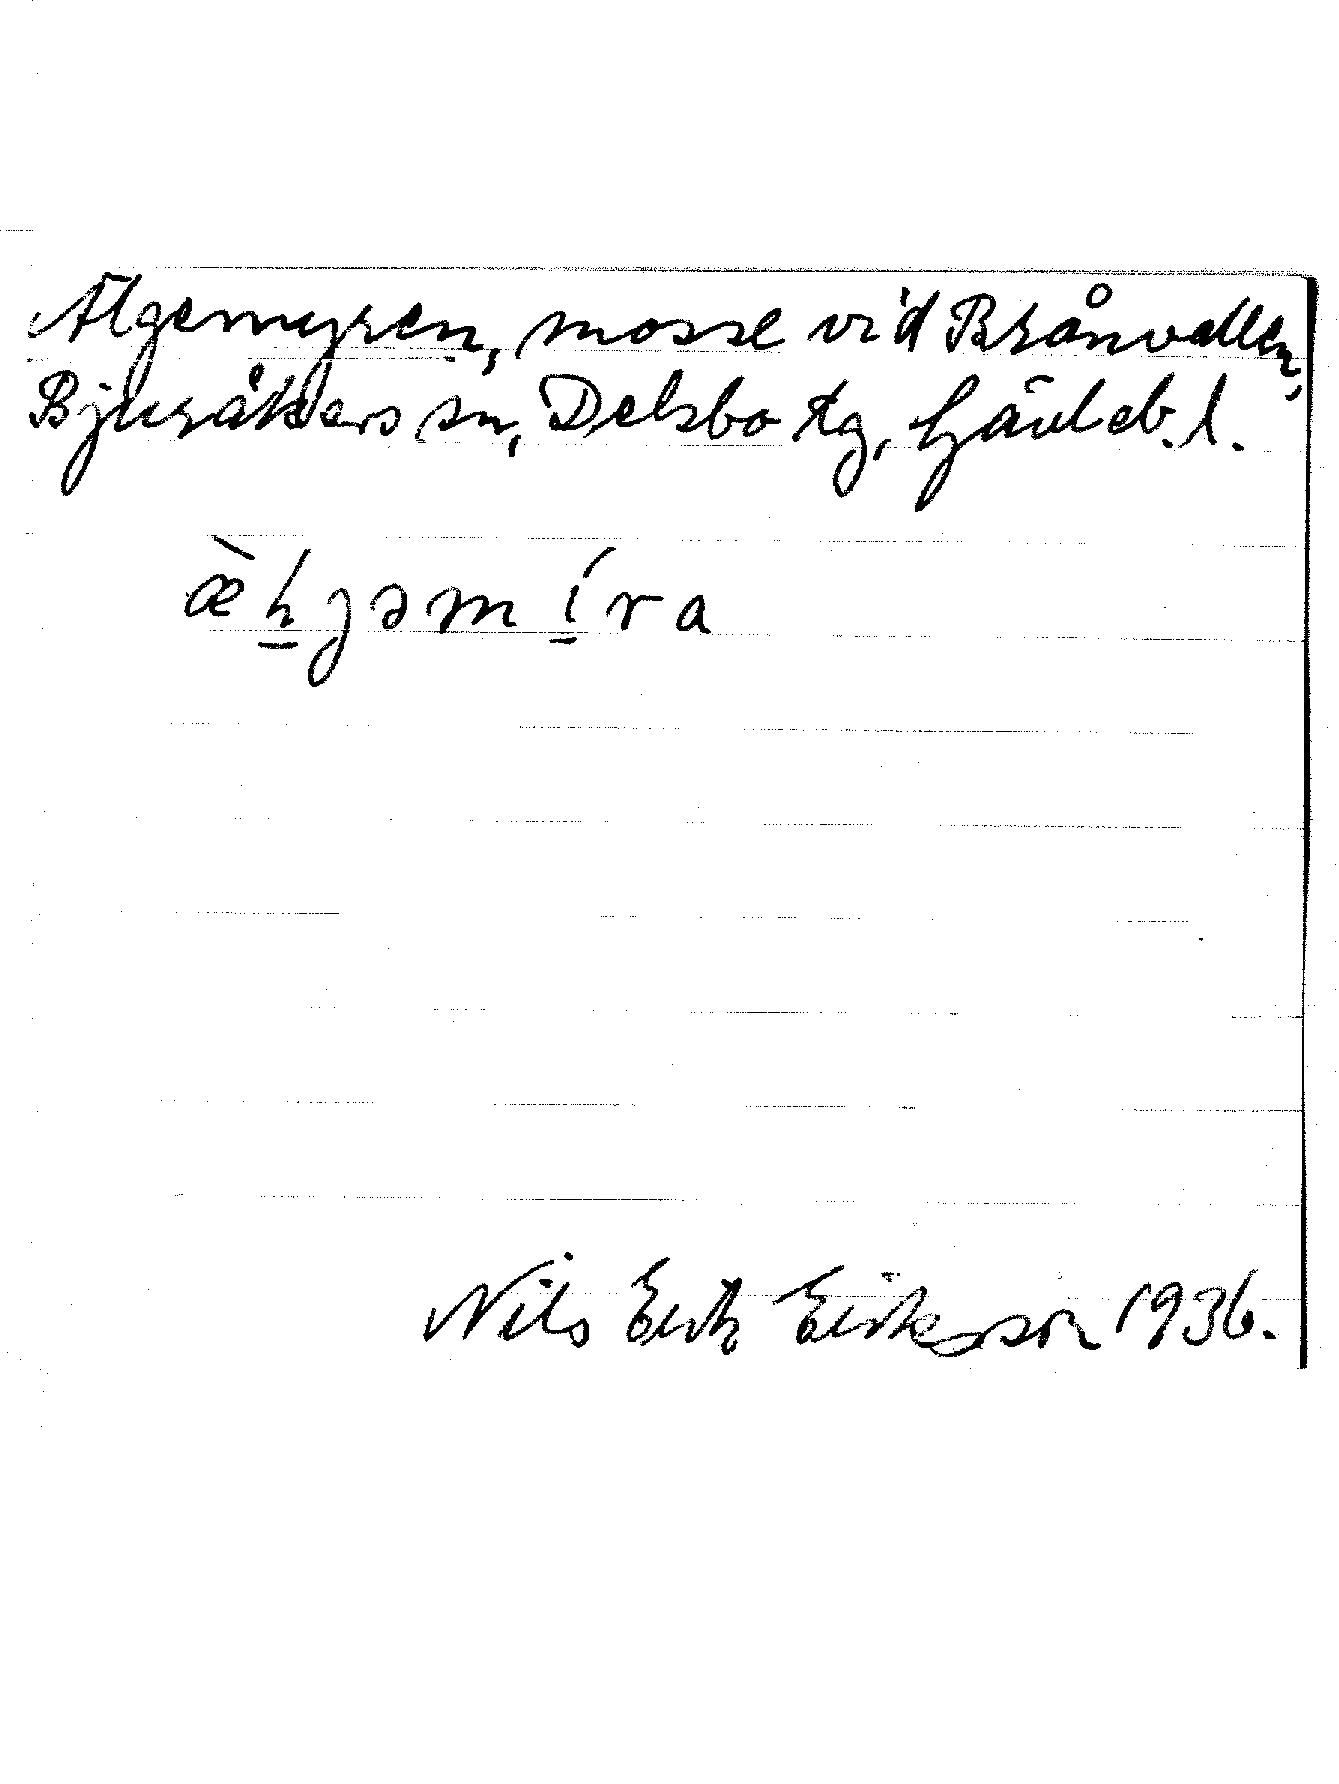 Älgemyren, mosse vid Brånvallen,
Bjuråkers sn, Delsbo tg, Gävleb. l.
æ̀ẖgəmí̱ra
Nils Erik Eriksson 1936.